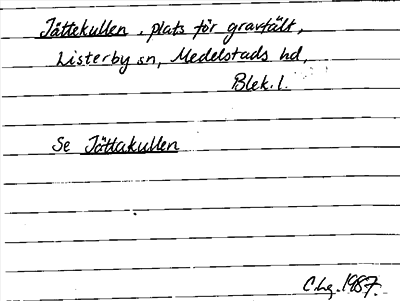 Jättekullen, plats för gravfält,
Listerby sn, Medelstads hd,
Blek. l.
Se Jättakullen
C.Lg. 1987.